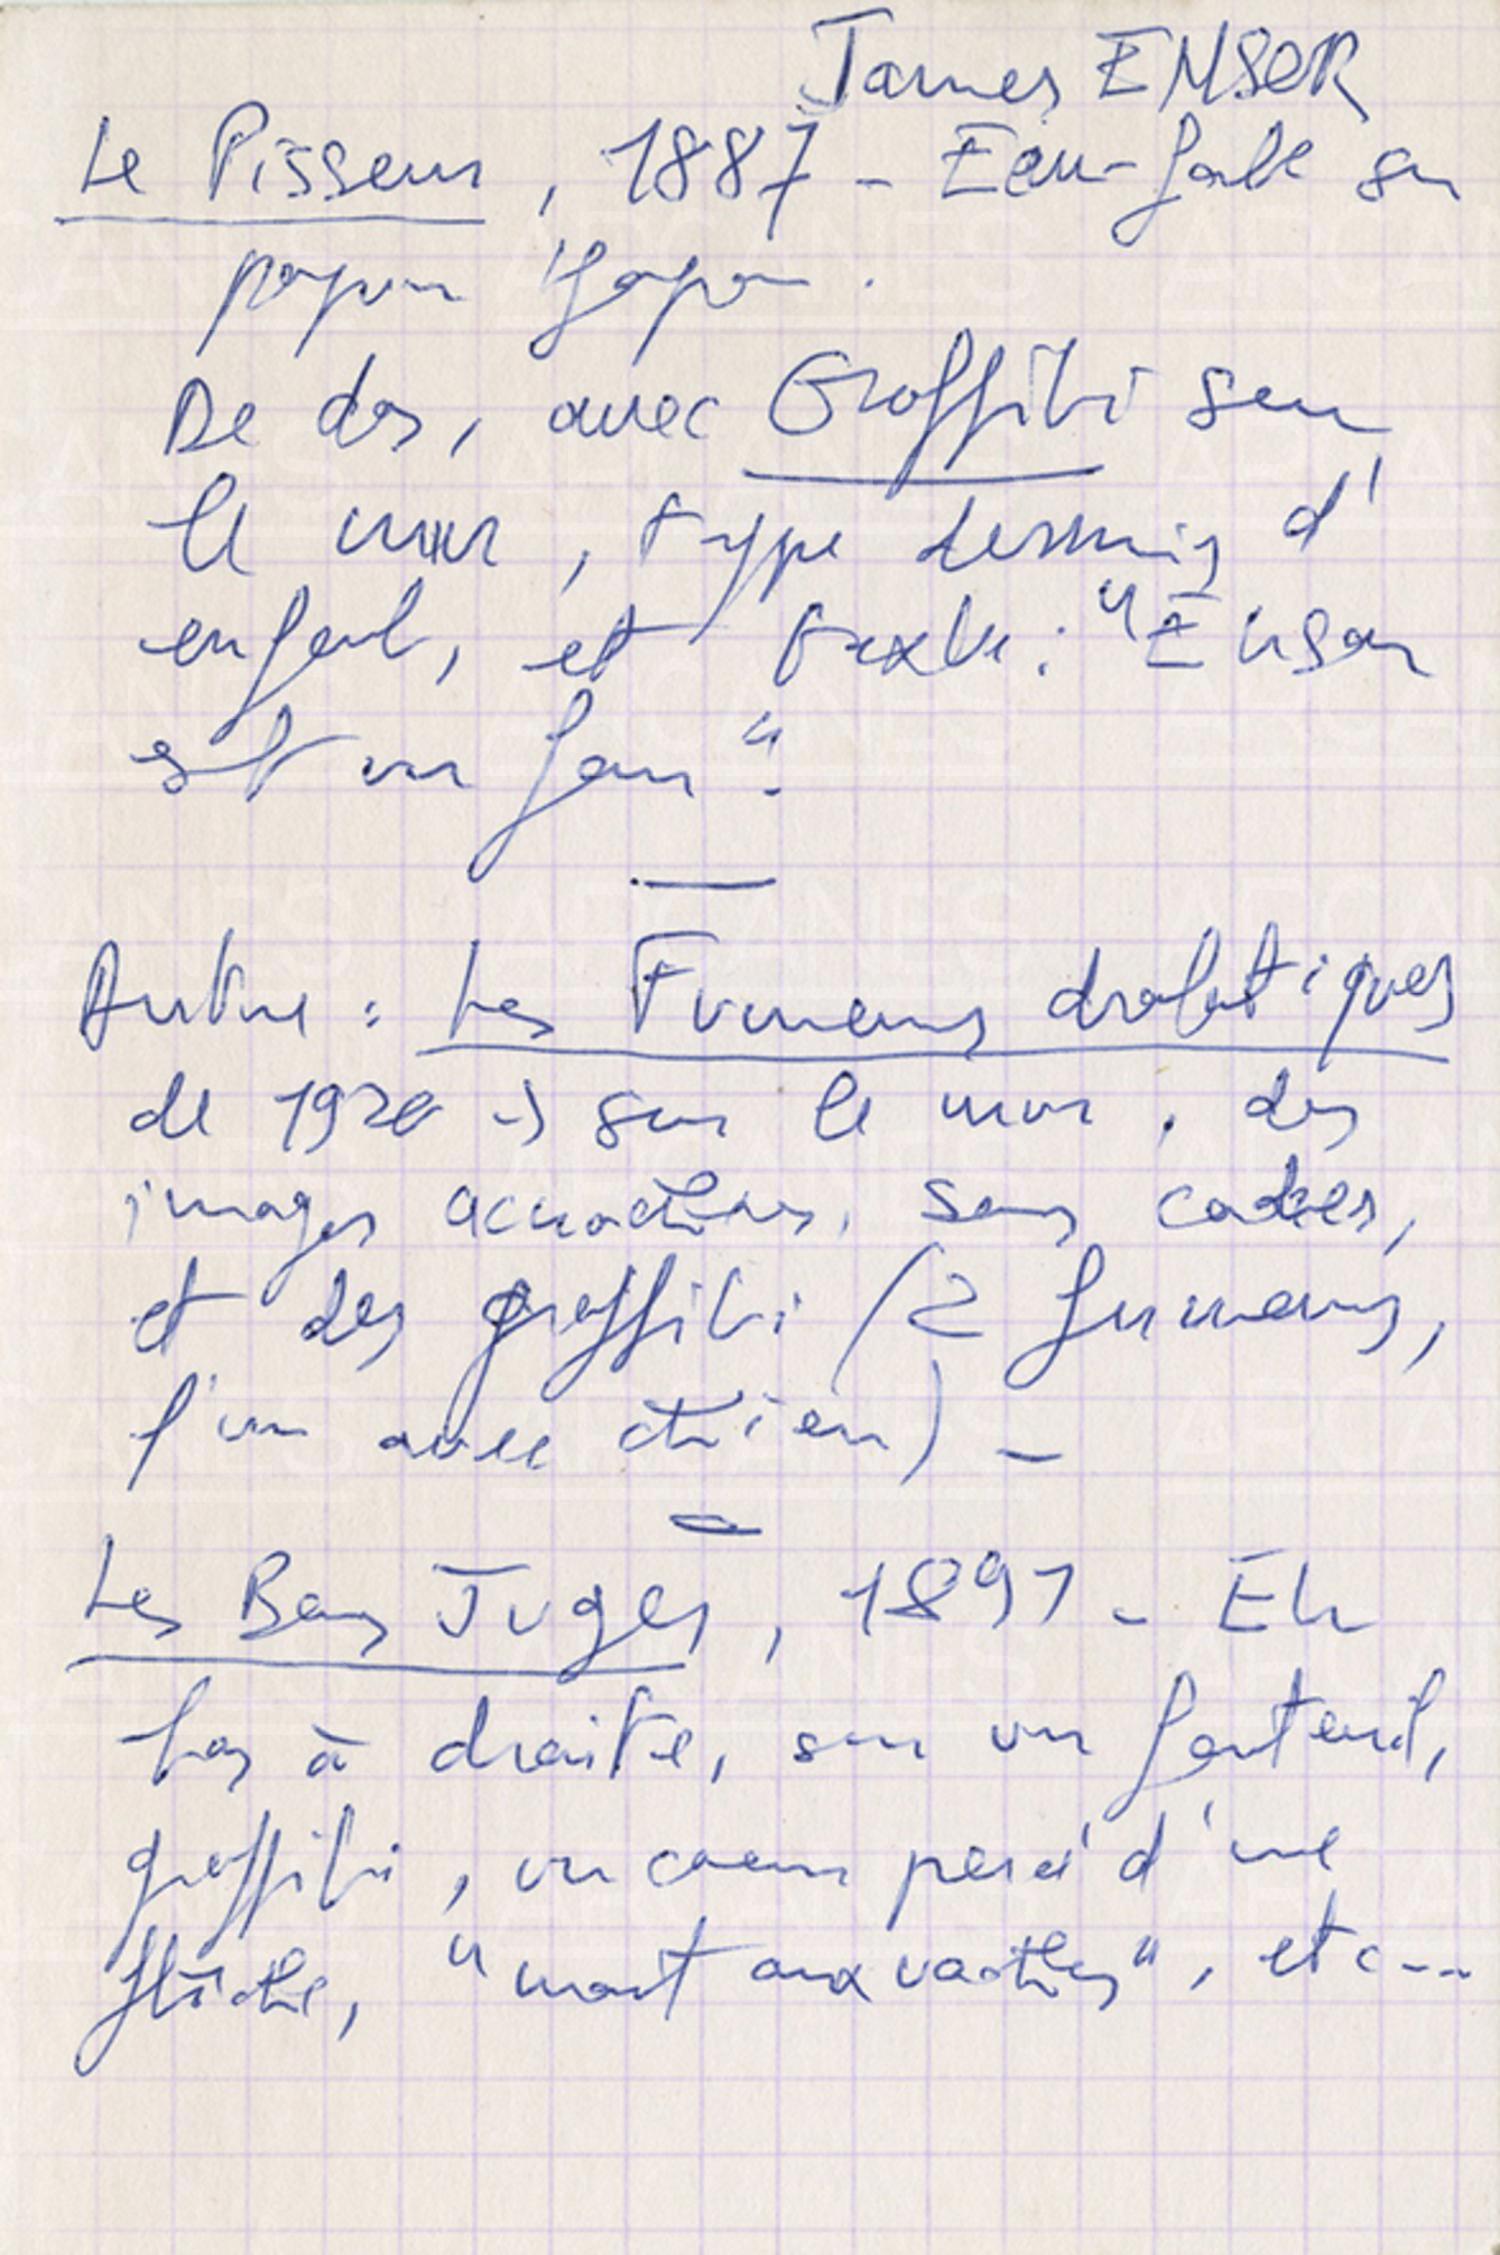 James ENSOR
Le Pisseur, 1887 - Eau-forte sur
papier Japon.
De dos, avec Graffiti sur
le mur, type dessins d'
enfant, et texte : "Ensor
est un fou".
Autre : Les Fumeurs drolatiques
de 1920 → sur le mur, des
images accrochées, sans cadres,
et des graffiti (2 fumeurs,
l'un avec chien) -
Les Bons Juges, 1891 - En
bas à droite, sur un fauteuil,
graffiti, un coeur percé d'une
flèche, "mort aux vaches", etc...